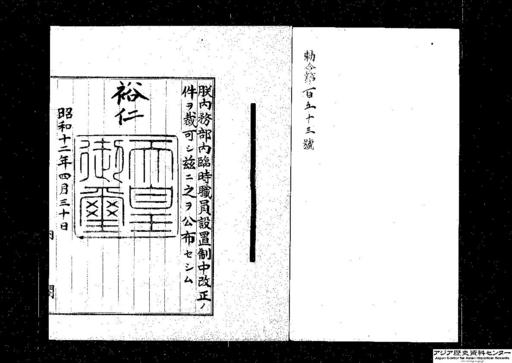 勅令第百五十三號
朕内務部内臨時職員設置制中改正ノ
件ヲ裁可シ茲ニ之ヲ公布セシム
裕仁
天皇
御璽
昭和十二年四月三十日
内閣
アジア歴史資料センター
Japan Center for Asian Historical Records